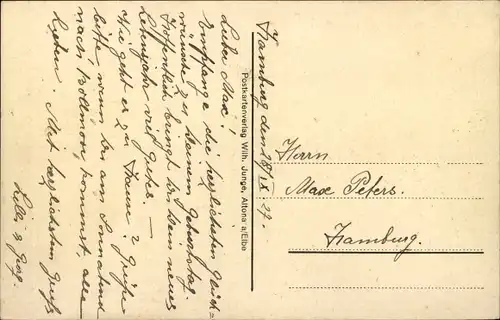 Hamburg den 18/IX. 29.
Lieber Max!
Empfange die herzlichsten Glück-
wünsche zu Deinem Geburtstag.
Hoffentlich bringt Dir Dein neues
Lebensjahr viel Gutes. —
Wie geht es zu Hause? Grüße
bitte, wenn Du am Sonnabend
nach kommst, alle
Lieben. Mit herzlichstem Gruß
Postkartenverlag Wilh. Junge, Altona a/Elbe
Herrn
Max Peters.
Hamburg.